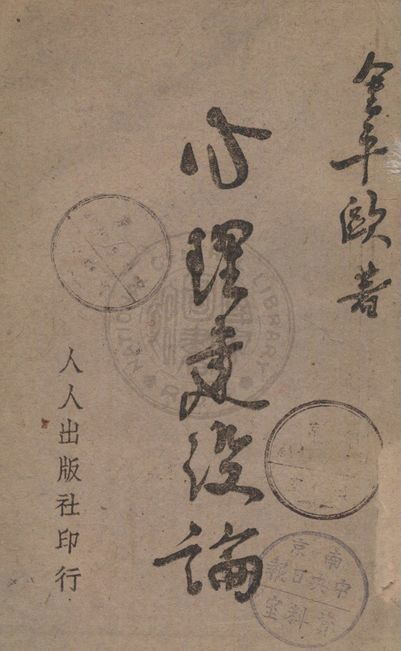 金平歐著
心理建設論
人人出版社印行
南京
中央日報
資料室
NATIONAL LIBRARY